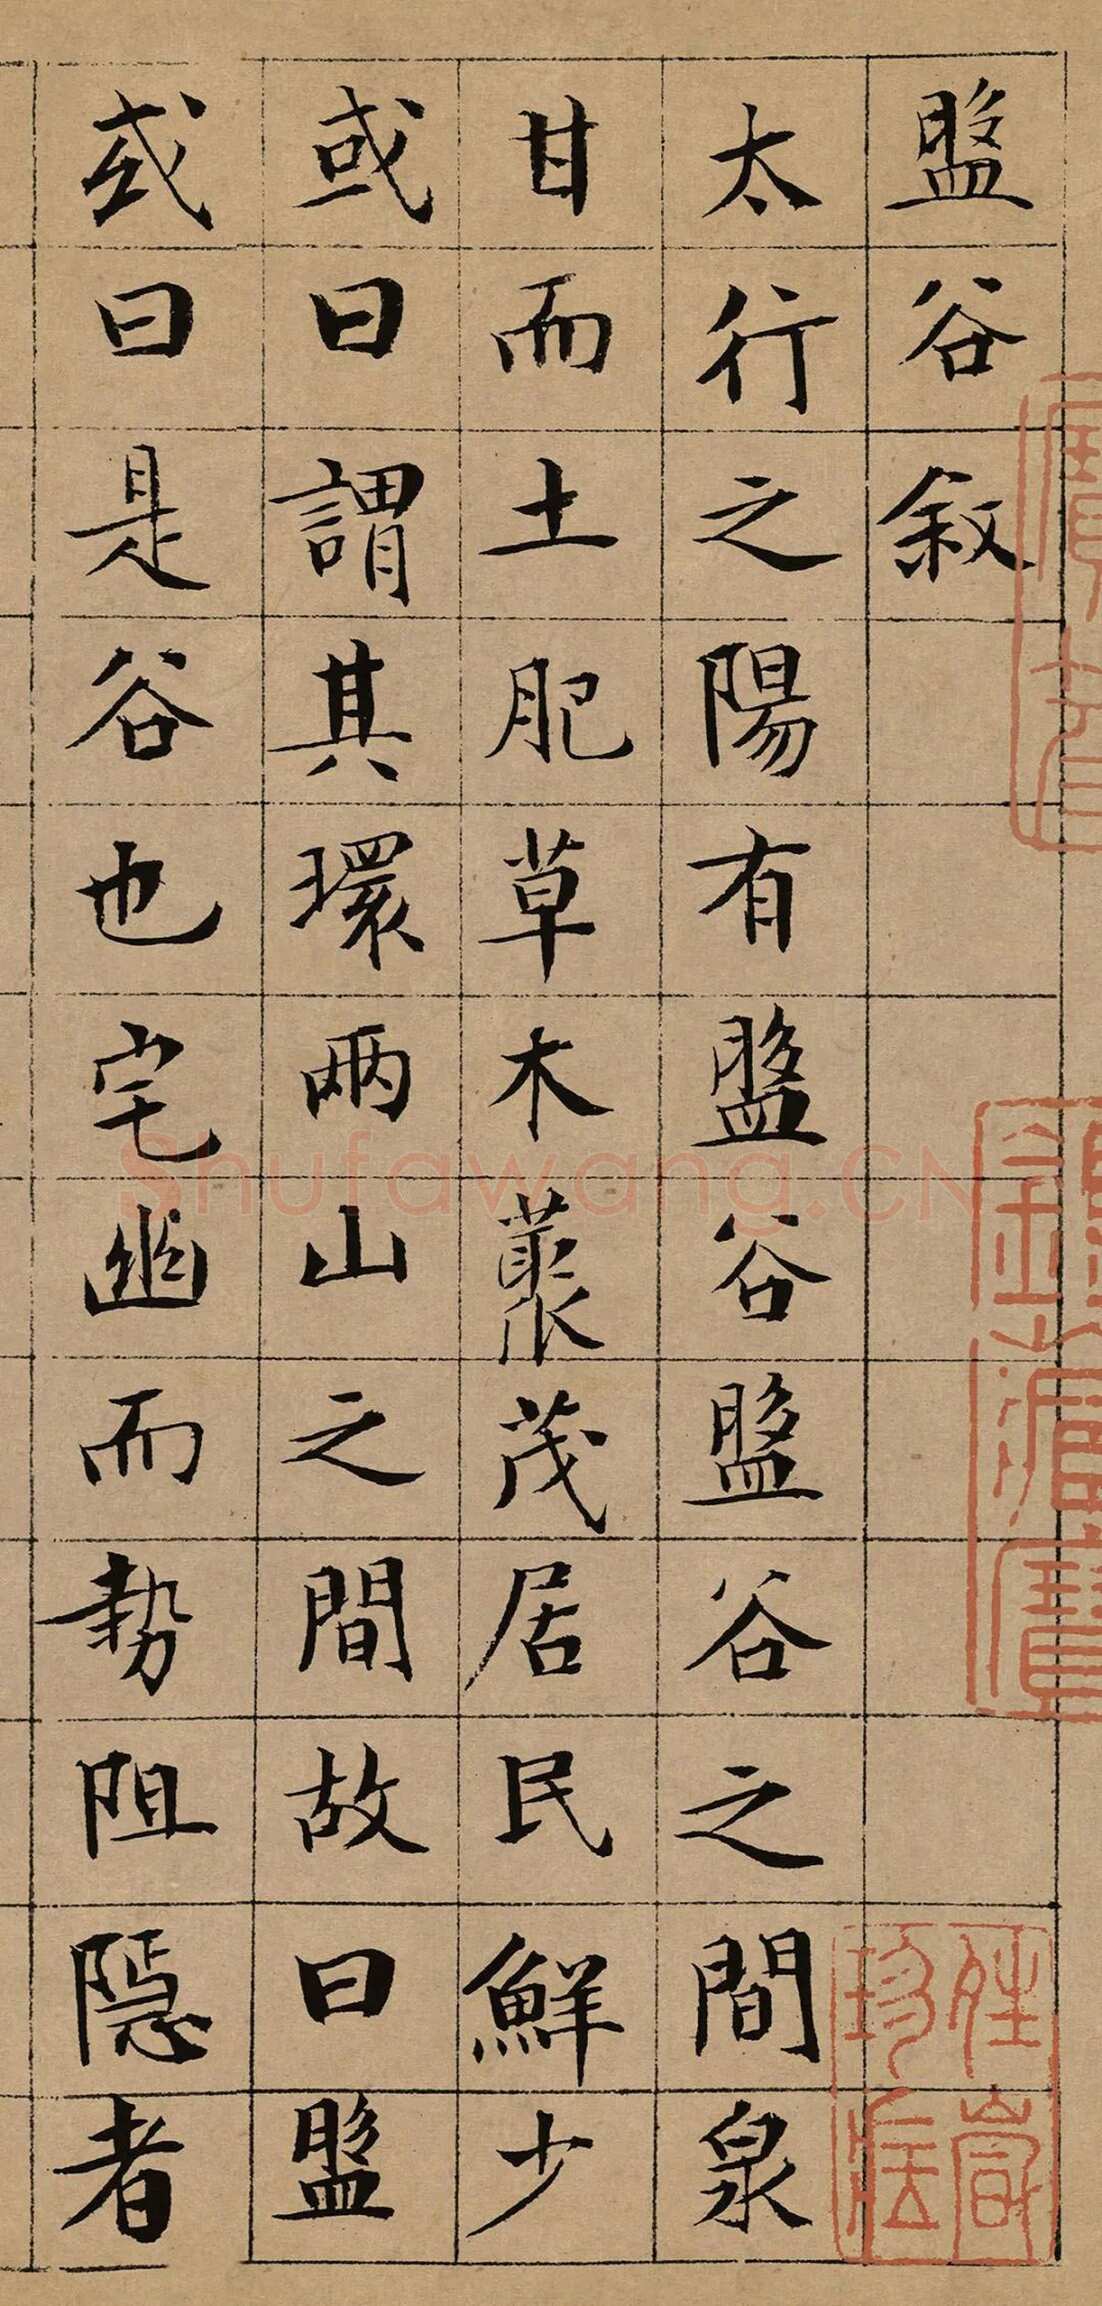 盤谷敘
太行之陽有盤谷盤谷之間泉
甘而土肥草木藂茂居民鮮少
或曰謂其環兩山之間故曰盤
或曰是谷也宅幽而勢阻隱者
Shufawang.CN